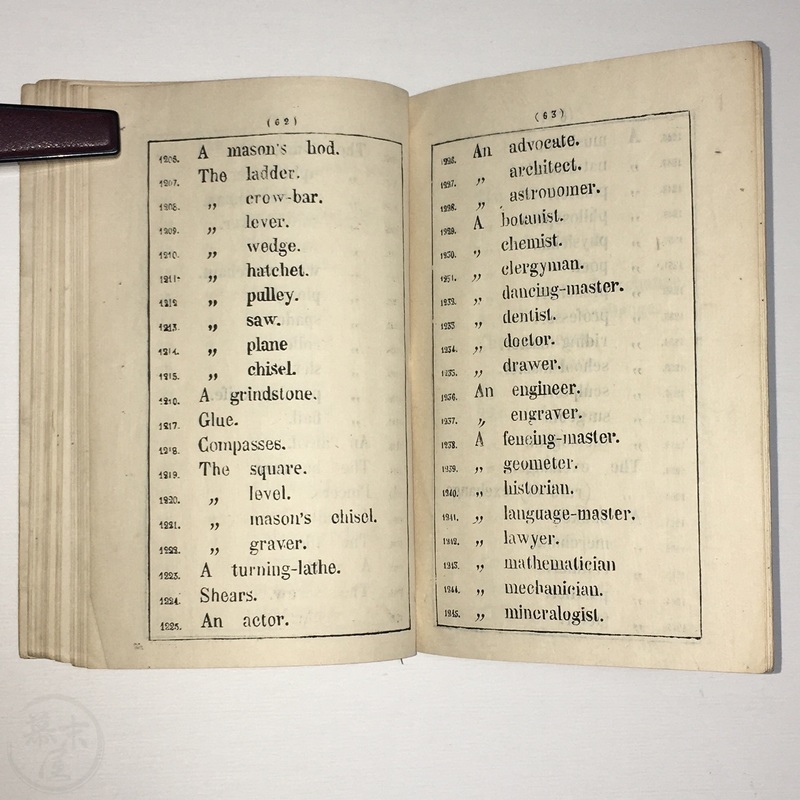 (62)
1206. A mason's hod.
1207. The ladder.
1208. „ crow-bar.
1209. „ lever.
1210. „ wedge.
1211. „ hatchet.
1212 „ pulley.
1213. „ saw.
1214. „ plane
1215. „ chisel.
1216. A grindstone.
1217. Glue.
1218. Compasses.
1219. The square.
1220. „ level.
1221. „ mason's chisel.
1222. „ graver.
1223. A turning-lathe.
1224. Shears.
1225. An actor.
(63)
1226. An advocate.
1227. „ architect.
1228. „ astronomer.
1229. A botanist.
1230. „ chemist.
1231. „ clergyman.
1232. „ dancing-master.
1233 „ dentist.
1234. „ doctor.
1235. „ drawer.
1236. An engineer.
1237. „ engraver.
1238. A fencing-master.
1239. „ geometer.
1240. „ historian.
1241. „ language-master.
1242. „ lawyer.
1243. „ mathematician
1244. „ mechanician.
1245. „ mineralogist.
幕末屋